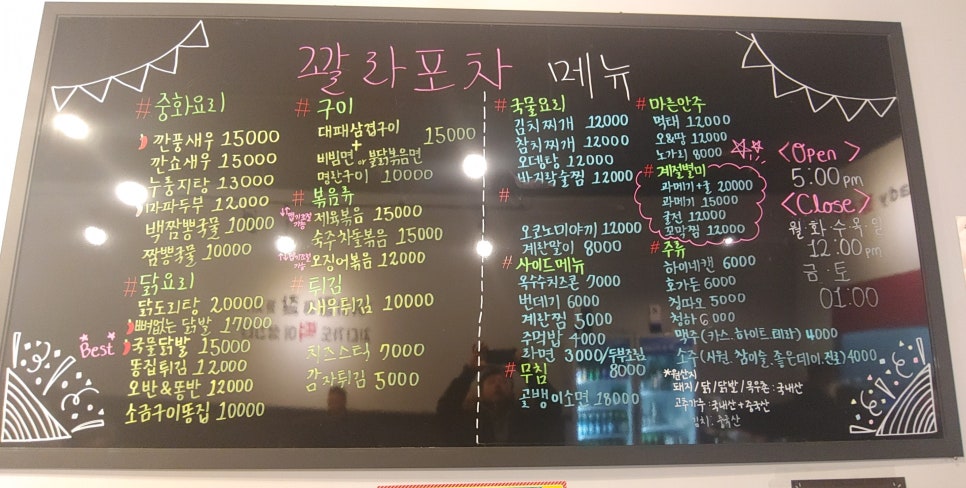 깔라포차 메뉴
#중화요리
깐풍새우 15000
깐쇼새우 15000
누룽지탕 13000
마파두부 12000
백짬뽕국물 10000
짬뽕국물 10000
#닭요리
닭도리탕 20000
뼈없는 닭발 17000
Best 국물닭발 15000
똥집튀김 12000
오반&똥반 12000
소금구이똥집 10000
# 구이
대패삼겹구이 15000
+
비빔면 or 불닭볶음면
명란구이 10000
# 볶음류
제육볶음 15000
숙주차돌볶음 15000
오징어볶음 12000
# 튀김
새우튀김 10000
치즈스틱 7000
감자튀김 5000
#국물요리
김치찌개 12000
참치찌개 12000
오뎅탕 12000
바지락술찜 12000
#
오코노미야끼 12000
계란말이 8000
#사이드메뉴
옥수치즈콘 7000
번데기 6000
계란찜 5000
주먹밥 4000
라면 3000
8000
#무침
골뱅이소면 18000
#마른안주
먹태 12000
오&땅 12000
노가리 8000
#계절별미
과메기+굴 20000
과메기 15000
굴전 12000
꼬막찜 12000
#주류
하이네캔 6000
호가든 6000
청하 6000
맥주(카스.하이트.테라) 4000
소주(시원.참이슬.좋은데이.진로) 4000
*원산지
돼지/닭/닭발/육우존:국내산
고춧가루:국내산+중국산
김치:중국산
<Open>
5:00pm
<Close>
월·화·수·목·일
12:00pm
금·토
01:00